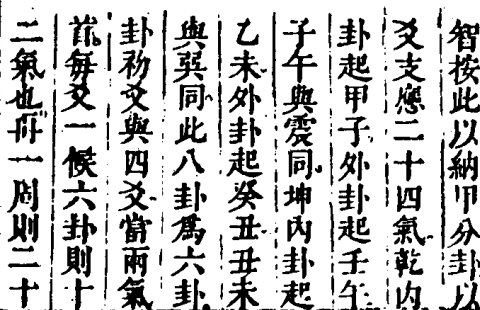 智按此以納甲分卦以
爻支應二十四氣乾內
卦起甲子外卦起壬午
子午與震同坤內卦起
乙未外卦起癸丑丑未
與巽同此八卦為六卦
卦初爻與四爻當兩氣
首每爻一候六卦則十
二氣也再一周則二十